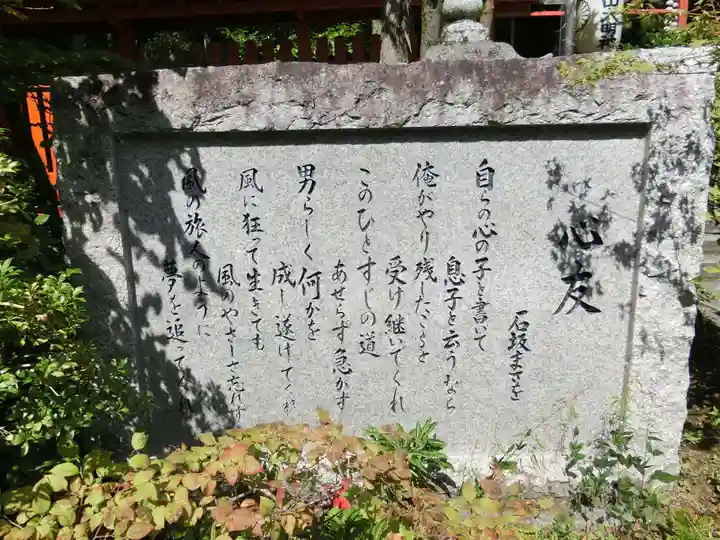 心友
石坂まさを
自らの心の子と書いて
息子と云うなら
俺がやり残したことを
受け継いでくれ
このひとすじの道
あせらず急がず
男らしく何かを
成し遂げてくれ
風に狂って生きても
風のやさしさ忘れず
風の旅人のように
夢を追ってくれ
山大明神